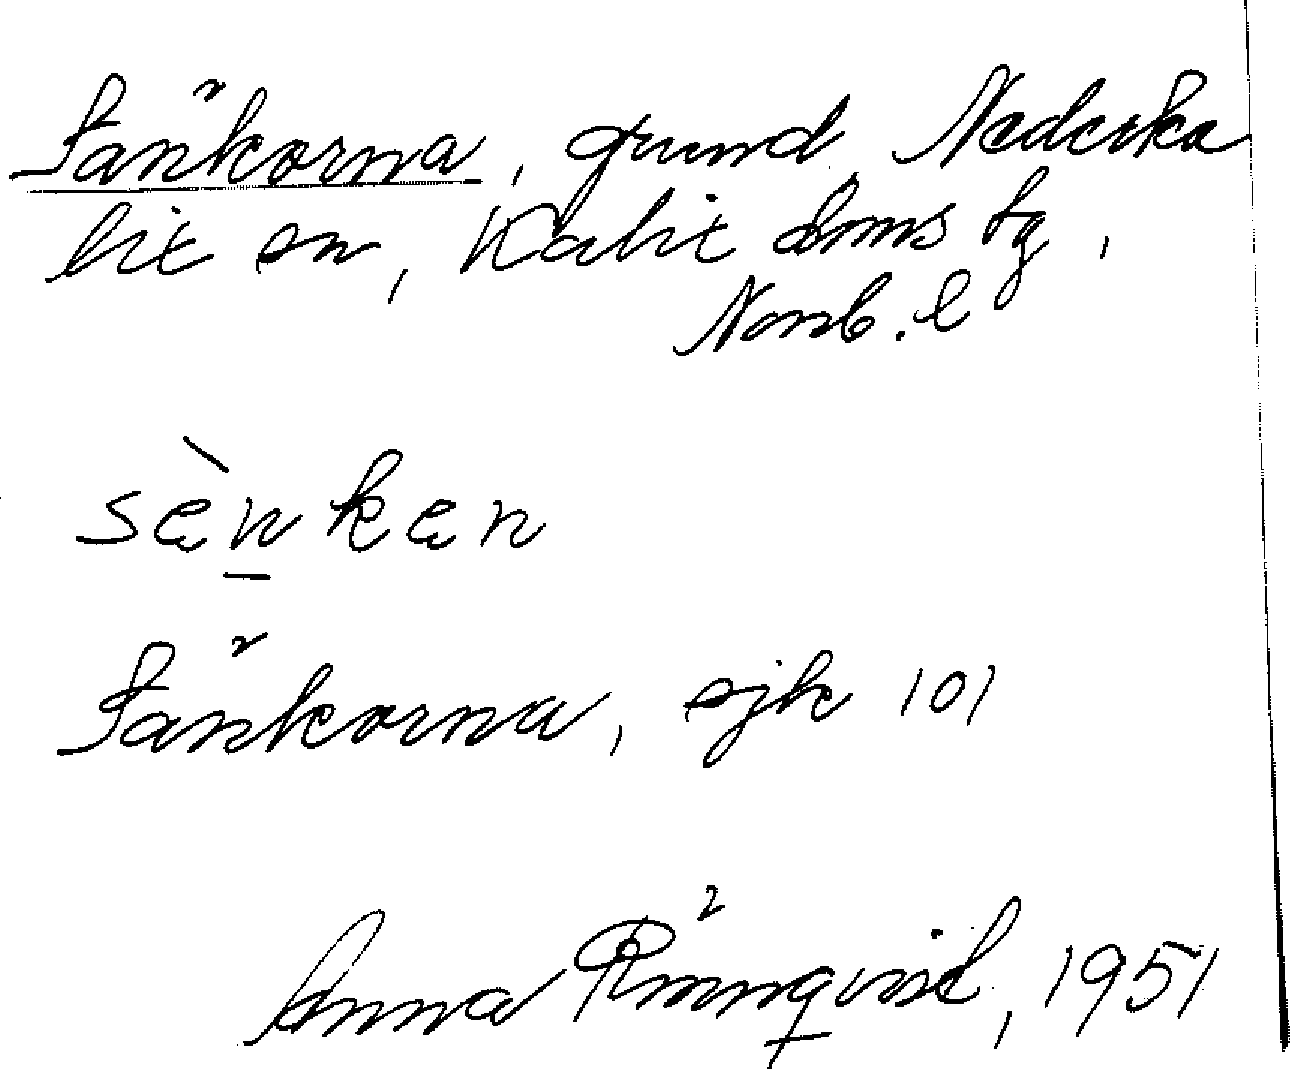 Sänkorna, grund, Nederka
lix sn, Kalix doms tg,
Norrb. l
sènkan
Sänkorna, ejk 101
Anna Rönnqvist, 1951